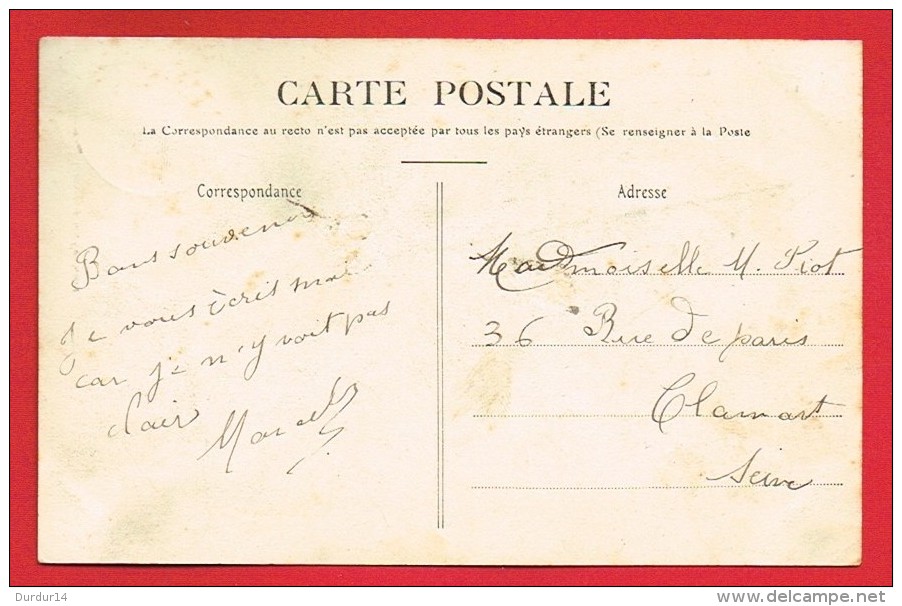 CARTE POSTALE
La Correspondance au recto n'est pas acceptée par tous les pays étrangers (Se renseigner à la Poste
Correspondance
Bons souvenirs
Je vous écris mal
car je n'y voit pas
clair
Marcel
Adresse
Mademoiselle M. Piot
36 Rue de paris
Clamart
Seine
Durdur14
delcampe.net